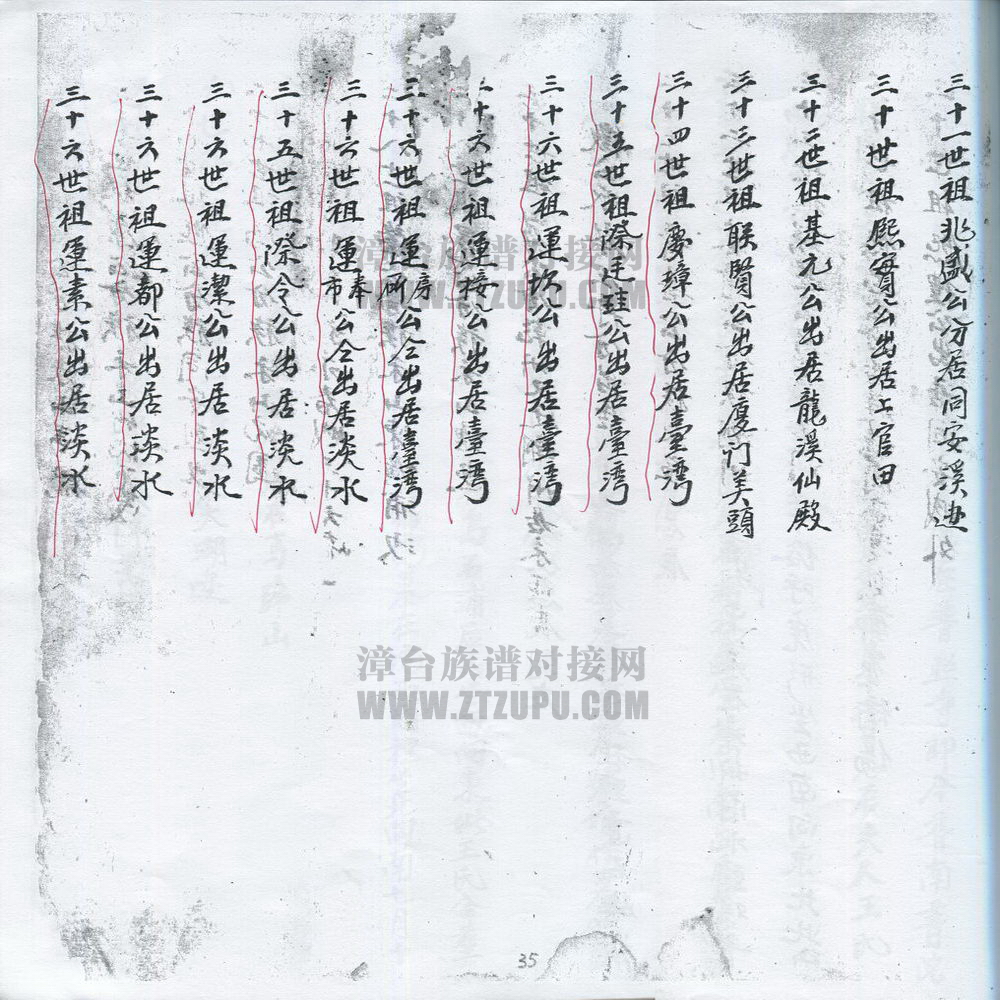 三十一世祖兆盛公分居同安溪边
三十世祖熙賓公出居上官田
三十二世祖基元公出居龍溪仙殿
三十三世祖联賢公出居厦门美頭
三十四世祖慶璋公出居臺湾
三十五世祖際廷珪公出居臺湾
三十六世祖運坎公出居臺湾
三十六世祖運接公出居臺湾
三十六世祖運房所公仝出居臺湾
三十六世祖運奉市公仝出居淡水
三十五世祖際令公出居淡水
三十六世祖運潔公出居淡水
三十六世祖運都公出居淡水
三十六世祖運素公出居淡水
漳台族谱对接网
WWW.ZTZUPU.COM
漳台族谱对接网
WWW.ZTZUPU.COM
35